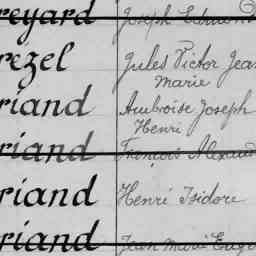 reyard Joseph Edmond
rézel Jules Victor Jean
Marie
riand Ambroise Joseph
Henri
riand François Alexand
riand Henri Isidore
riand Jean Marie Euge